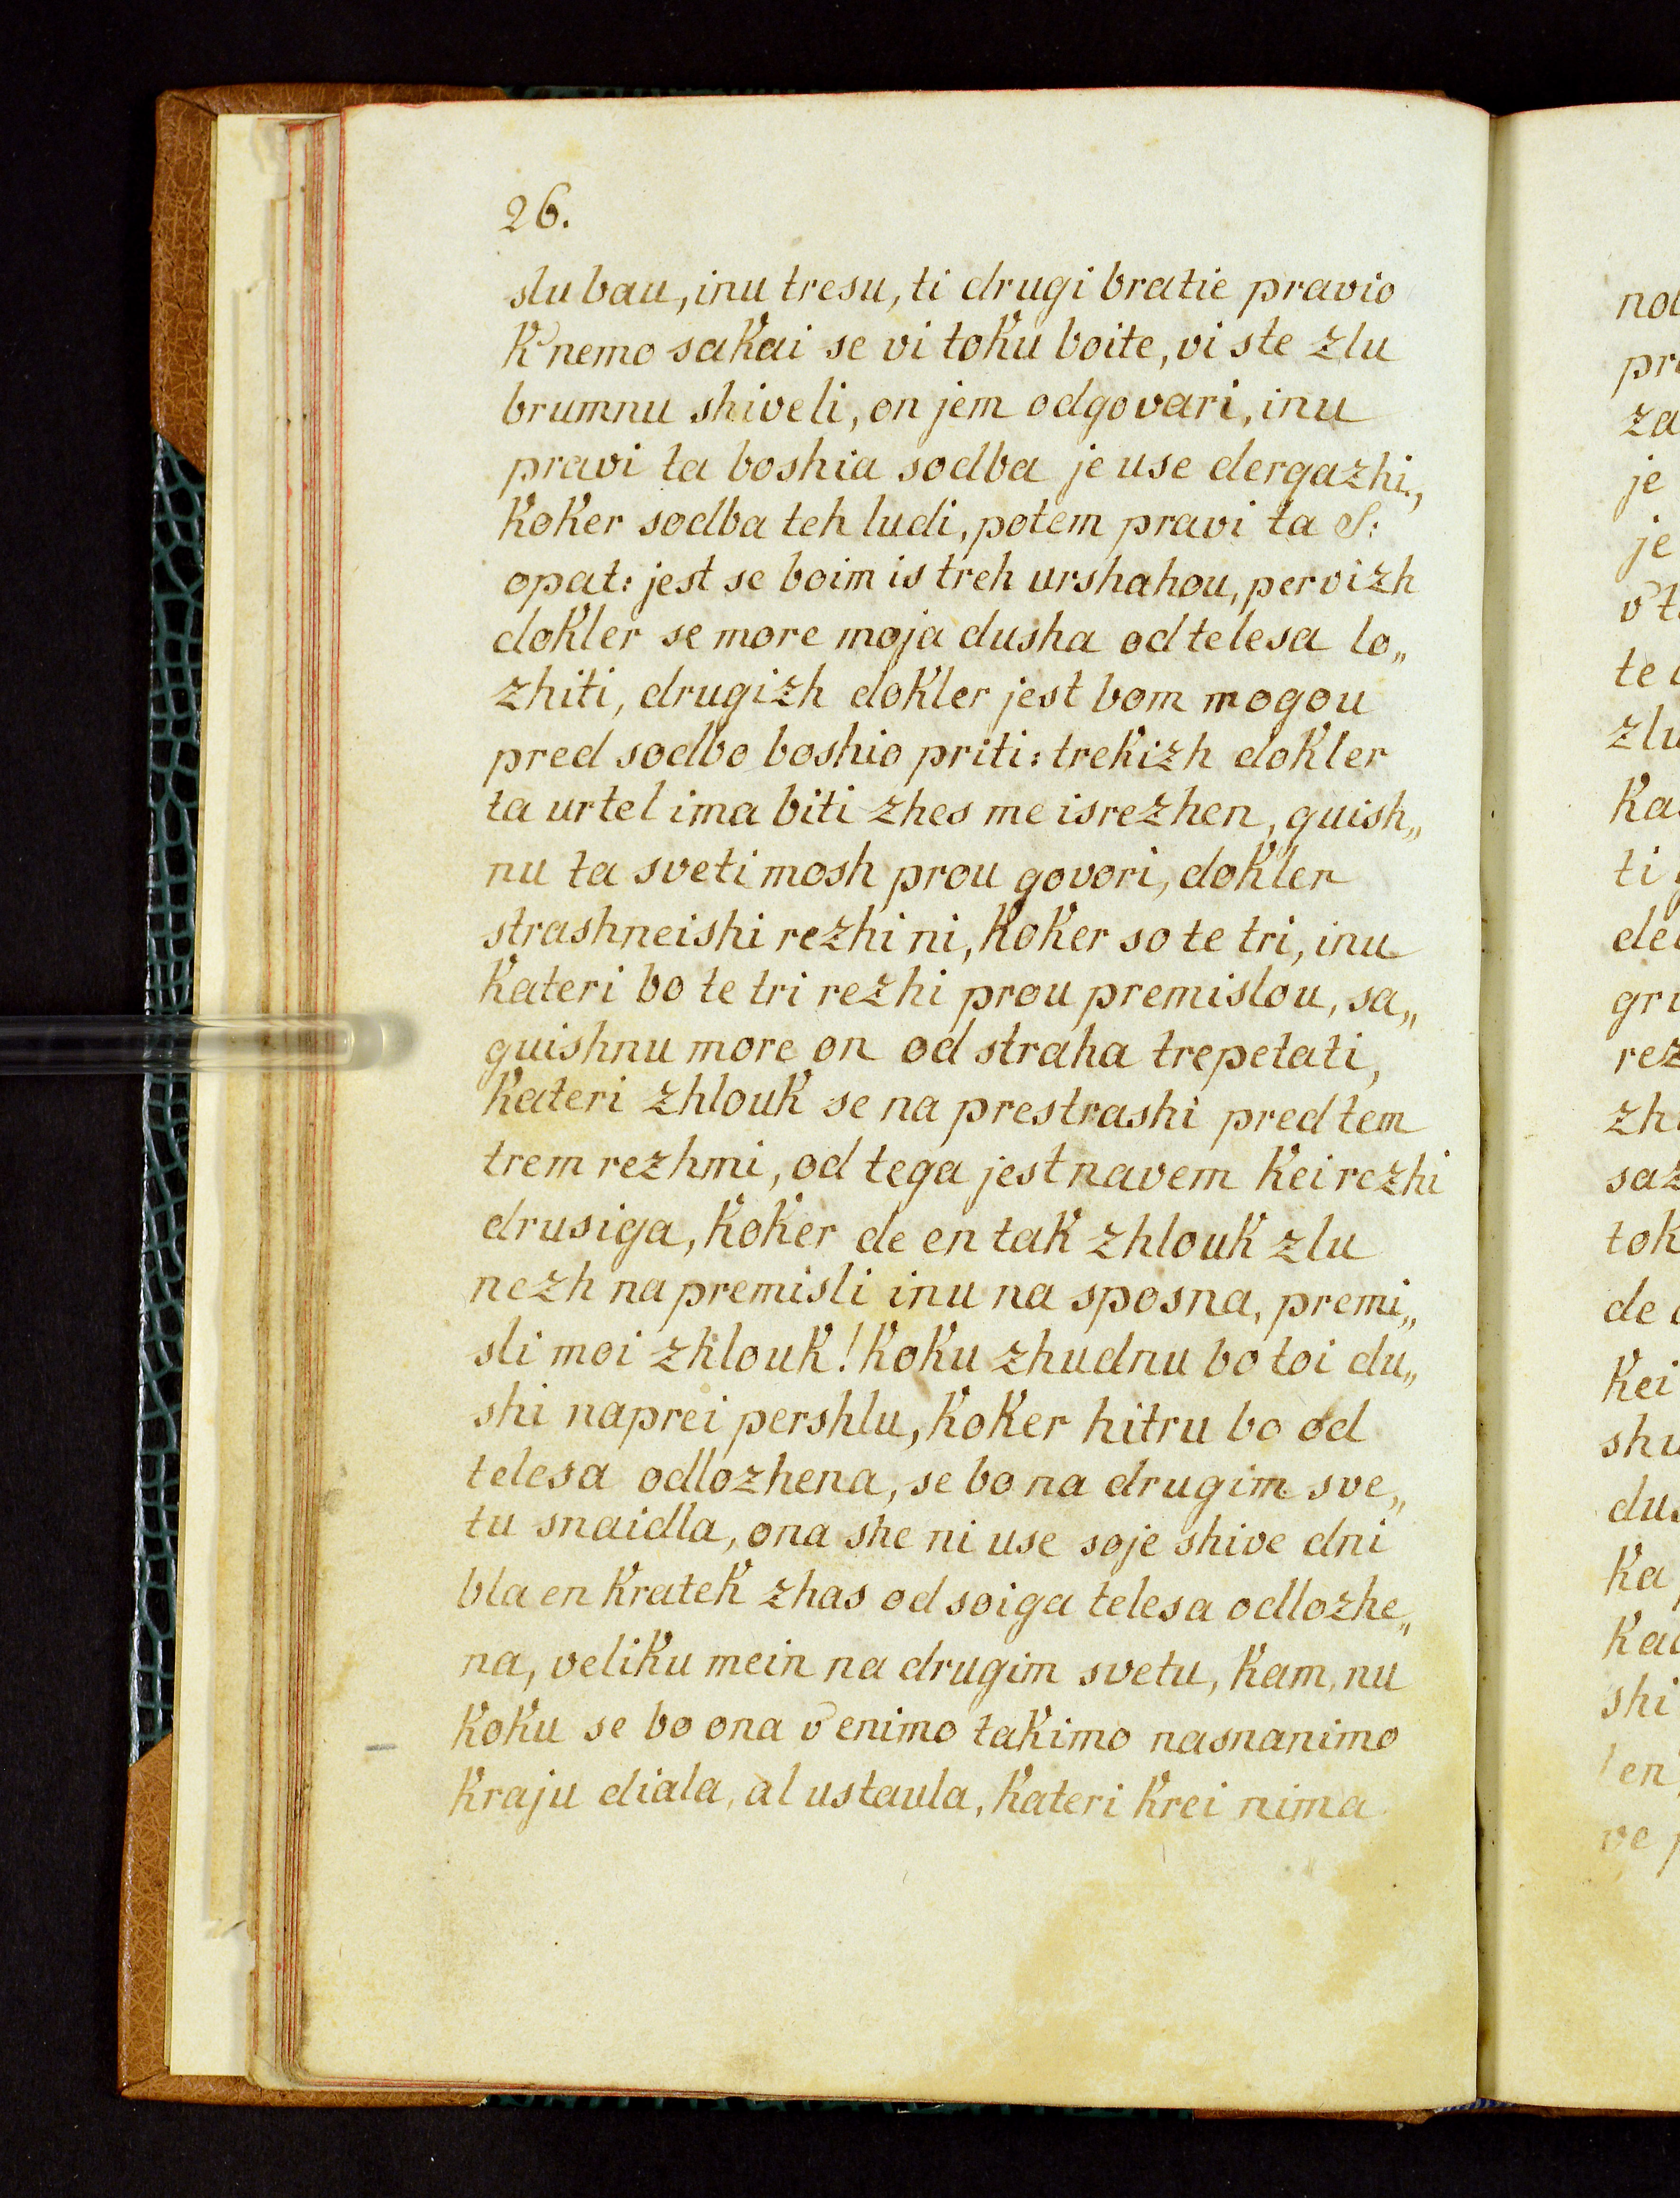 26.
slu bau, inu tresu, ti drugi bratie pravio
K'nemo sakai se vi toku boite, vi ste zlu
brumnu shiveli, on jem odgovari, inu
pravi ta boshia sodba je use dergazhi,
Koker sodba teh ludi, potem pravi ta S:
opat: jest se boim is treh urshahou, pervizh
dokler se more moja dusha od telesa lo„
zhiti, drugizh dokler jest bom mogou
pred sodbo boshio priti: trekizh dokler
ta urtel ima biti zhes me isrezhen, guish„
nu ta sveti mosh prou govori, dokler
strashneishi rezhi ni, Koker so te tri, inu
Kateri bo te tri rezhi prou premislou, sa„
guishnu more on od straha trepetati,
Kateri zhlouk se na prestrashi pred tem
trem rezhmi, od tega jest navem Kei rezhi
drusiga, Koker de en tak zhlouk zlu
nezh na premisli inu na sposna, premi„
sli moi zhlouk! Koku zhudnu bo toi du„
shi naprei pershlu, Koker hitru bo od
telesa odlozhena, se bo na drugim sve„
tu snaidla, ona she ni use soje shive dni
bla en Kratek zhas od soiga telesa odlozhe„
na, veliku mein na drugim svetu, Kam, nu
Koku se bo ona v'enimo takimo nasnanimo
Kraju diala, al ustaula, Kateri Krei nima
pr
za
je
je
v't
te
zlu
ti
rez
zh
tok
de
Kei
Ka
shi
en
ve p